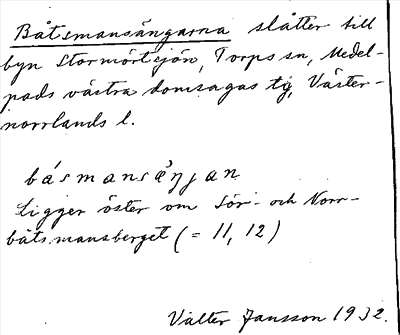 Båtsmansängarna slåtter till
byn Stormörtsjön, Torps sn, Medel-
pads västra domsagas tg, Väster-
norrlands l.
básmansäŋjan
Ligger öster om Sör- och Norr-
båtsmansberget (= 11, 12)
Valter Jansson 1932.